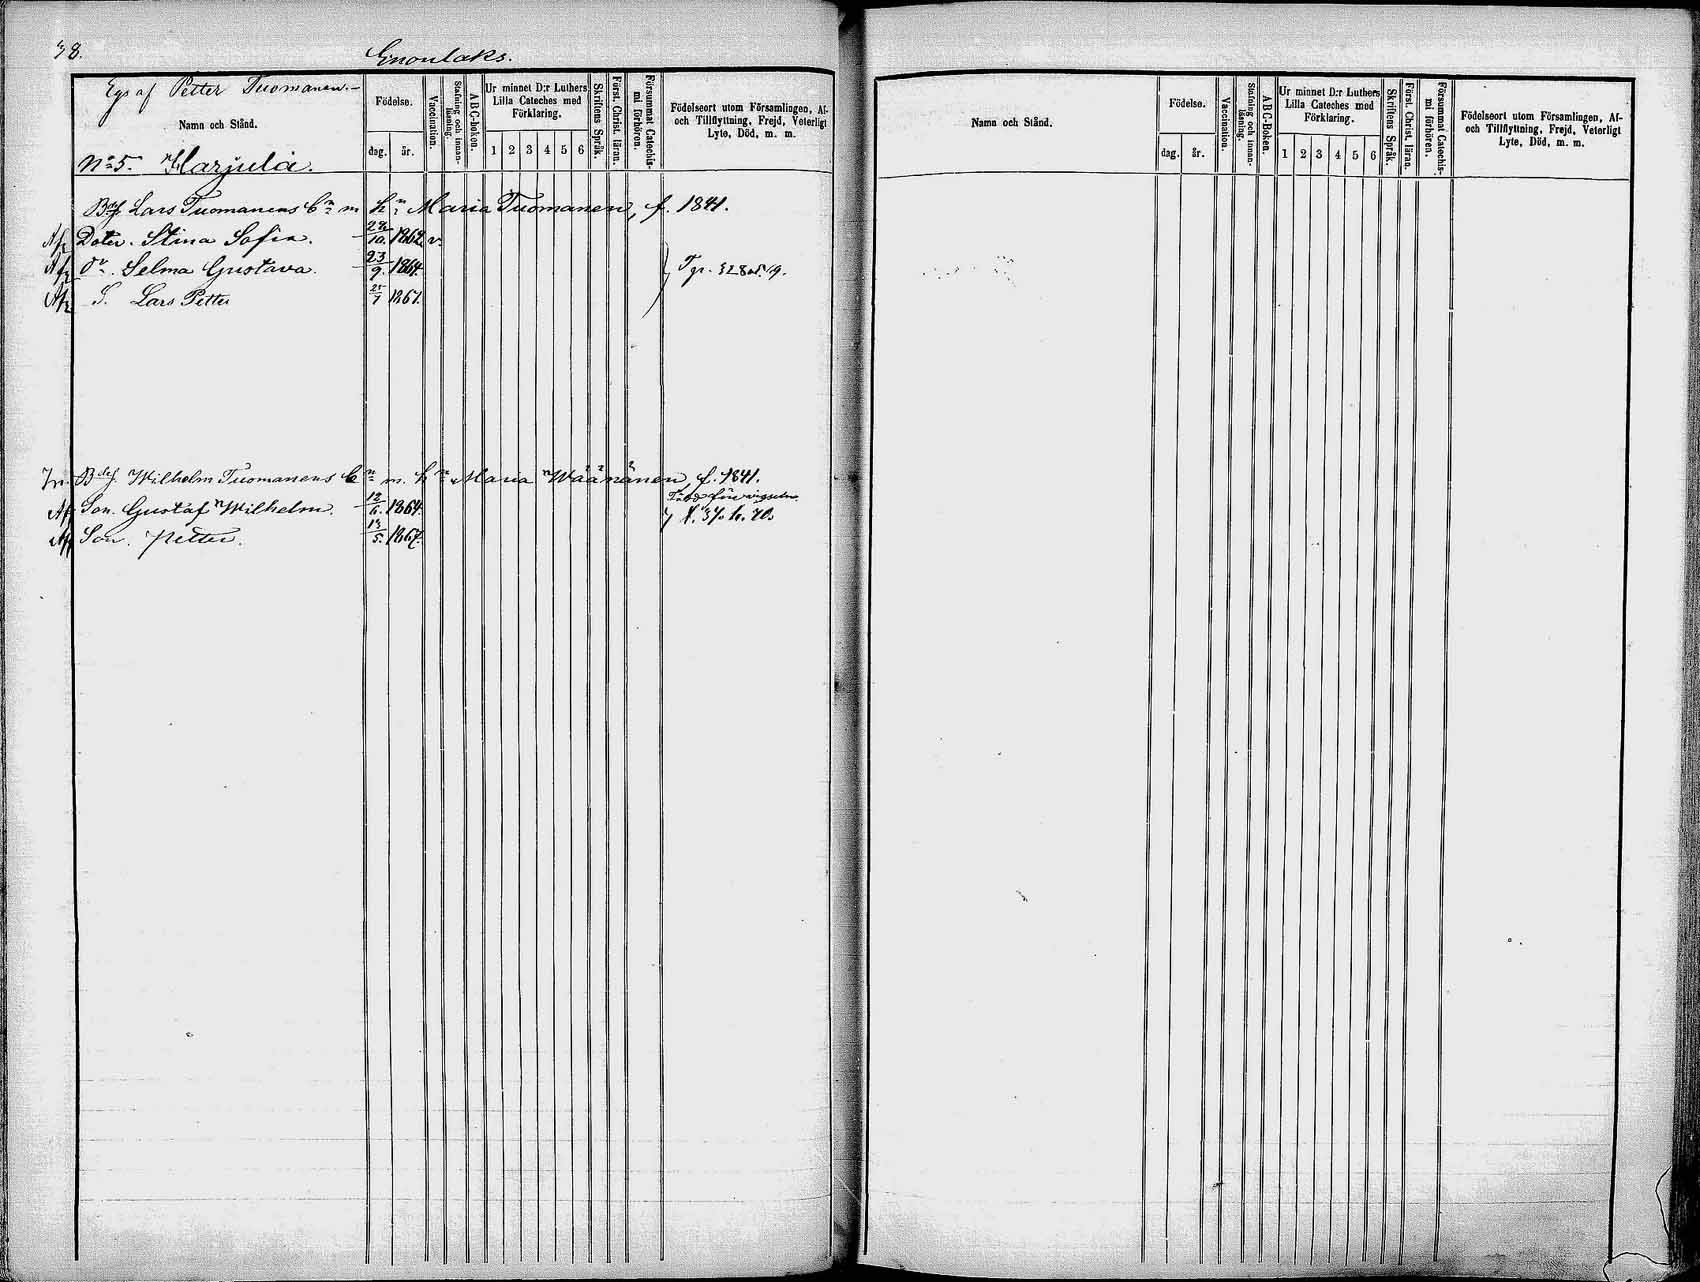 38.
Enonlaks.
Eges af Petter Tuomanen.
Namn och Stånd.
Födelse.
dag. år.
Vaccination.
Stafning och innanläsning.
ABC-boken.
Ur minnet D:r Luthers Lilla Cateches med Förklaring.
1 2 3 4 5 6
Skriftens Språk.
Först. Christ. läran.
Försummat Catechismi förhören.
Födelseort utom Församlingen, Af- och Tillflyttning, Frejd, Veterligt Lyte, Död, m. m.
No 5. Harjula.
Lars Tuomanens m h Maria Tuomanen, f. 1841.
Doter. Stina Sofia. 10. 1862. v.
Dr. Selma Gustava. 23/9. 1864.
S. Lars Petter 1867.
Wilhelm Tuomanens m. h Maria Wäänänen, f. 1841.
Son. Gustaf Wilhelm. 12/6. 1864.
Son. Petter. 13/5. 1867.
Namn och Stånd.
Födelse.
dag. år.
Vaccination.
Stafning och innanläsning.
ABC-Boken.
Ur minnet D:r Luthers Lilla Cateches med Förklaring.
1 2 3 4 5 6
Skriftens Språk.
Först. Christ. läran.
Försummat Catechismi förhören.
Födelseort utom Församlingen, Af- och Tillflyttning, Frejd, Veterligt Lyte, Död, m. m.